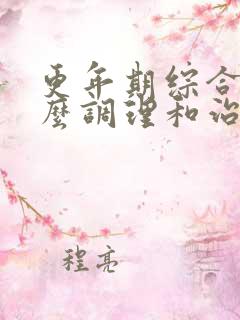 更年期綜合
麼調理和治
程亮